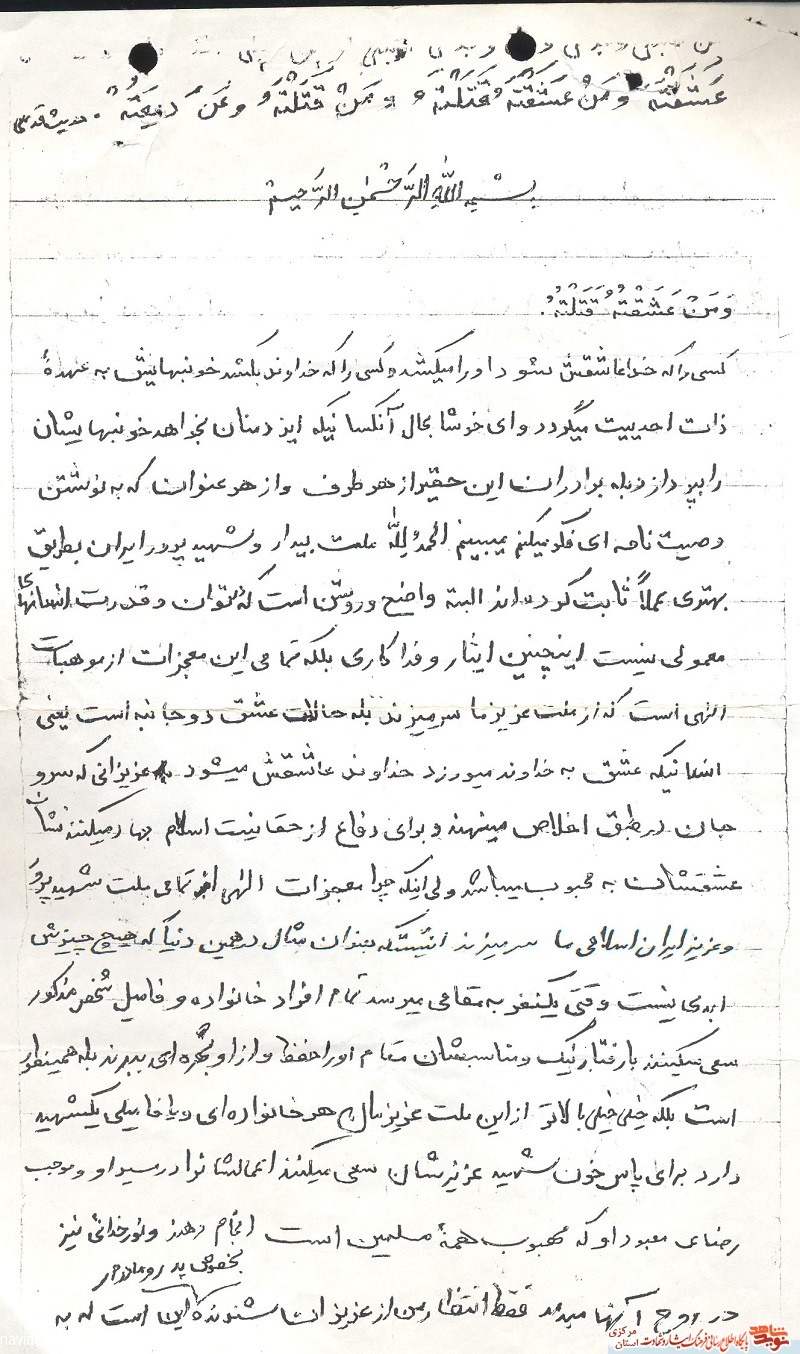 عَشَقتُهُ وَ مَنْ عَشَقْتُهُ قَتَلْتُهُ وَ مَنْ قَتَلْتُهُ وَ مَن دیَتُهُ . حدیث قدسی
بِسْمِ اللّهِ الرَّحْمنِ الرَّحیمِ
وَ مَنْ عَشَقْتُهُ قَتَلْتُهُ.
کسی را که خدا عاشقش شود او را میکشد و کسی را که خداوند بکشد خونبهایش به عهدهٔ
ذات احدییت میگردد وای خوشا بحال آنکسانیکه ایزد منان بخواهد خونبهایشان
را بپردازد بله برادران این حقیر از هر طرف و از هر عنوان که به نوشتن
وصیت نامه ای فکر میکنم میبینم الحمدُ لِلّه ملت بیدار و شهید پرور ایران بطریق
بهتری عملاً ثابت کرده اند البته واضح و روشن است که توان و قدرت انسانهای
معمولی نیست اینچنین ایثار و فداکاری بلکه تمامی این معجزات از موهبات
الهی است که از ملت عزیز ما سر میزند بله حالات عشق دو جانبه است یعنی
انسانیکه عشق به خداوند میورزد خداوند عاشقش میشود عزیزانی که سر و
جان در طبق اخلاص مینهند و برای دفاع از حقانیت اسلام جهاد میکنند نشان
عشقشان به محبوب میباشد ولی اینکه چرا معجزات الهی از تمامی ملت شهید پرور
و عزیز ایران اسلامی ما سر میزند اینستکه بعنوان مثال در همین دنیا که هیچ چیزش
ابدی نیست وقتی یکنفر به مقامی میرسد تمام افراد خانواده و فامیل شخص مذکور
سعی میکنند با رفتار نیک و مناسبشان مقام او را حفظ و از او بهره ای ببرند بله همینطور
است بلکه خیلی خیلی بالاتر از این ملت عزیز مال هر خانواده ای و یا فامیلی یکشهید
دارد برای پاس خون شهید عزیزشان سعی میکنند اعمالشانرا در مسیر او و موجب
رضای معبود او که محبوب همهٔ مسلمین است انجام دهند و نور خدائی نیز
بخصوص پدر و مادرم
در روح آنها میدمد فقط انتظار من از عزیزان شنونده این است که به
نوید شاهد
پایگاه اطلاع رسانی فرهنگ ایثار و شهادت
استان مرکزی